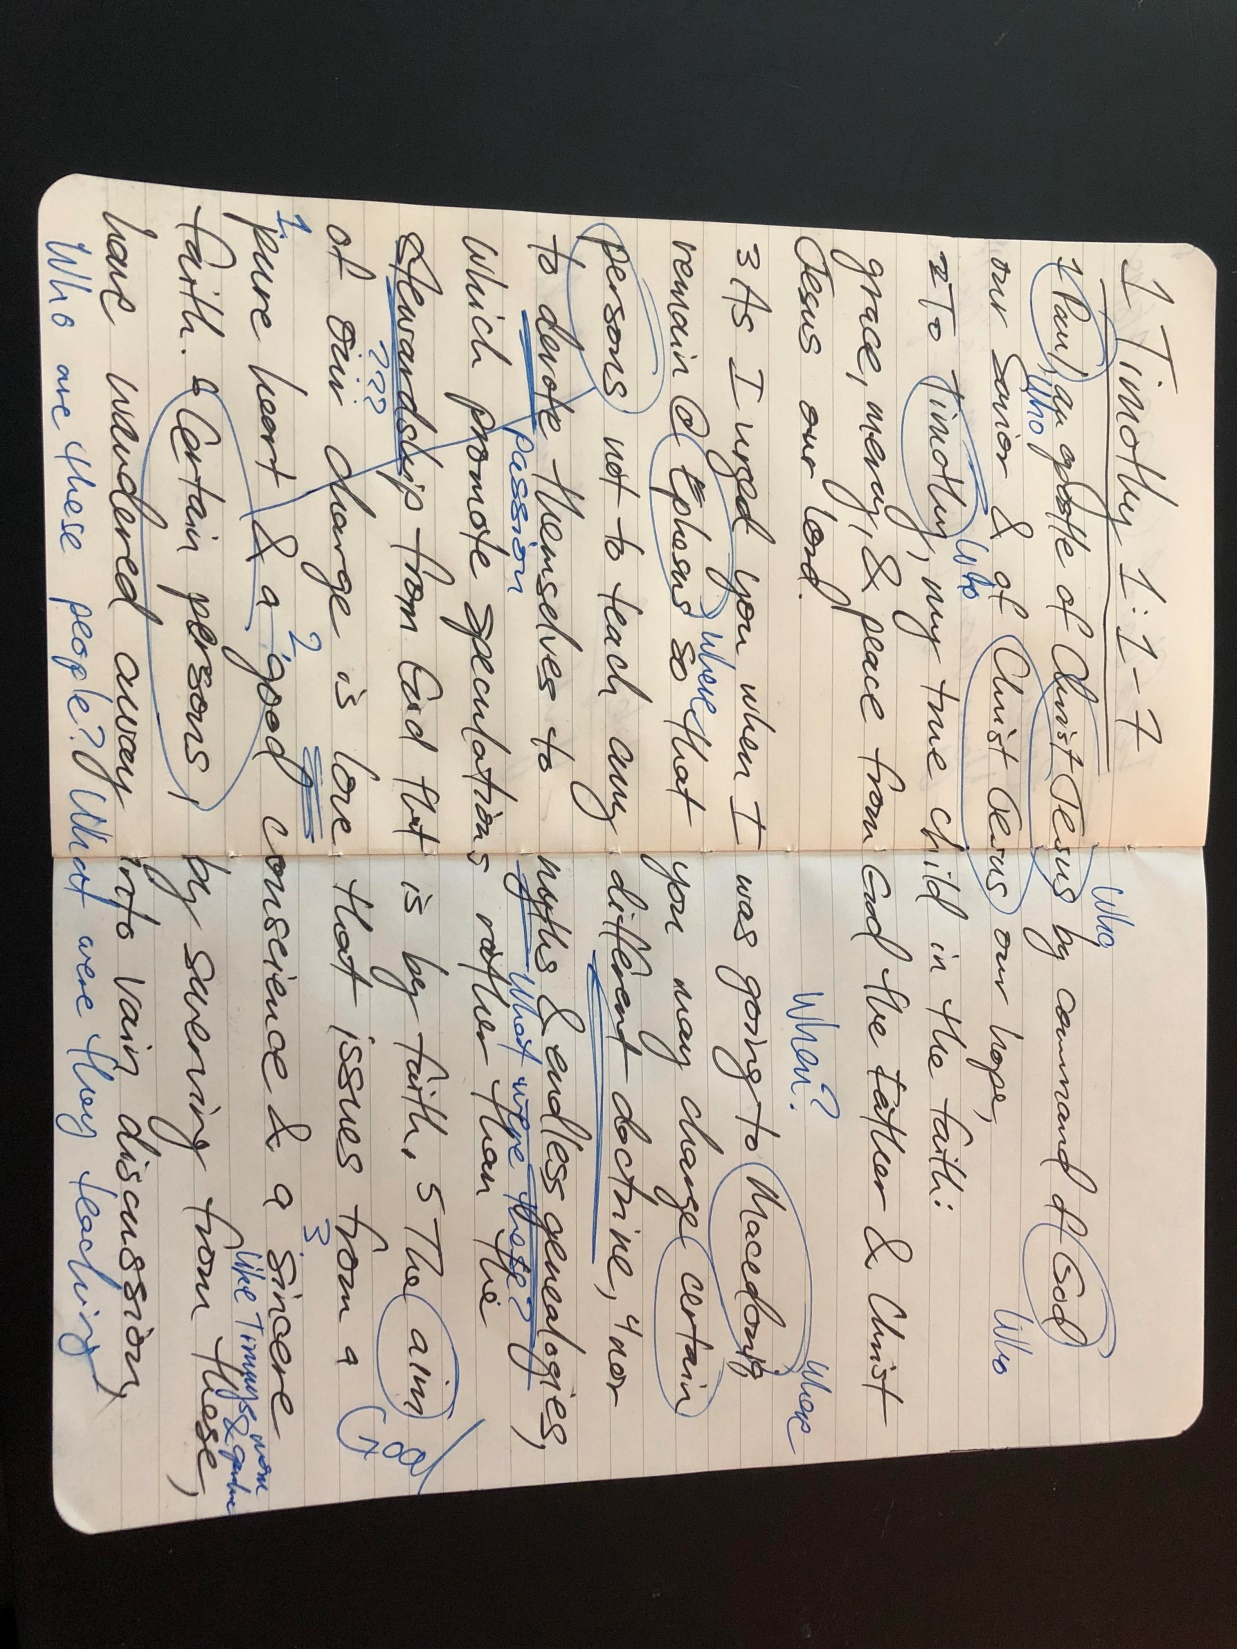 1 Timothy 1:1-7
Who
1 Paul, an apostle of Christ Jesus by command of God
Who
Who
our Savior & of Christ Jesus our hope,
2 To Timothy, my true child in the faith:
Who
grace, mercy, & peace from God the Father & Christ
Jesus our Lord.
When?
3 As I urged you when I was going to Macedonia
where
where
remain @ Ephesus so that you may charge certain
persons not to teach any different doctrine, 4 nor
to devote themselves to myths & endless genealogies,
passion
What were these?
which promote speculations rather than the
stewardship from God that is by faith. 5 The aim
???
Goal
of our charge is love that issues from a
1. 2 3
pure heart & a good conscience & a sincere
like Timmys mom &
faith. 6 Certain persons, by swerving from these,
have wandered away into vain discussion,
Who are these people? What were they teaching